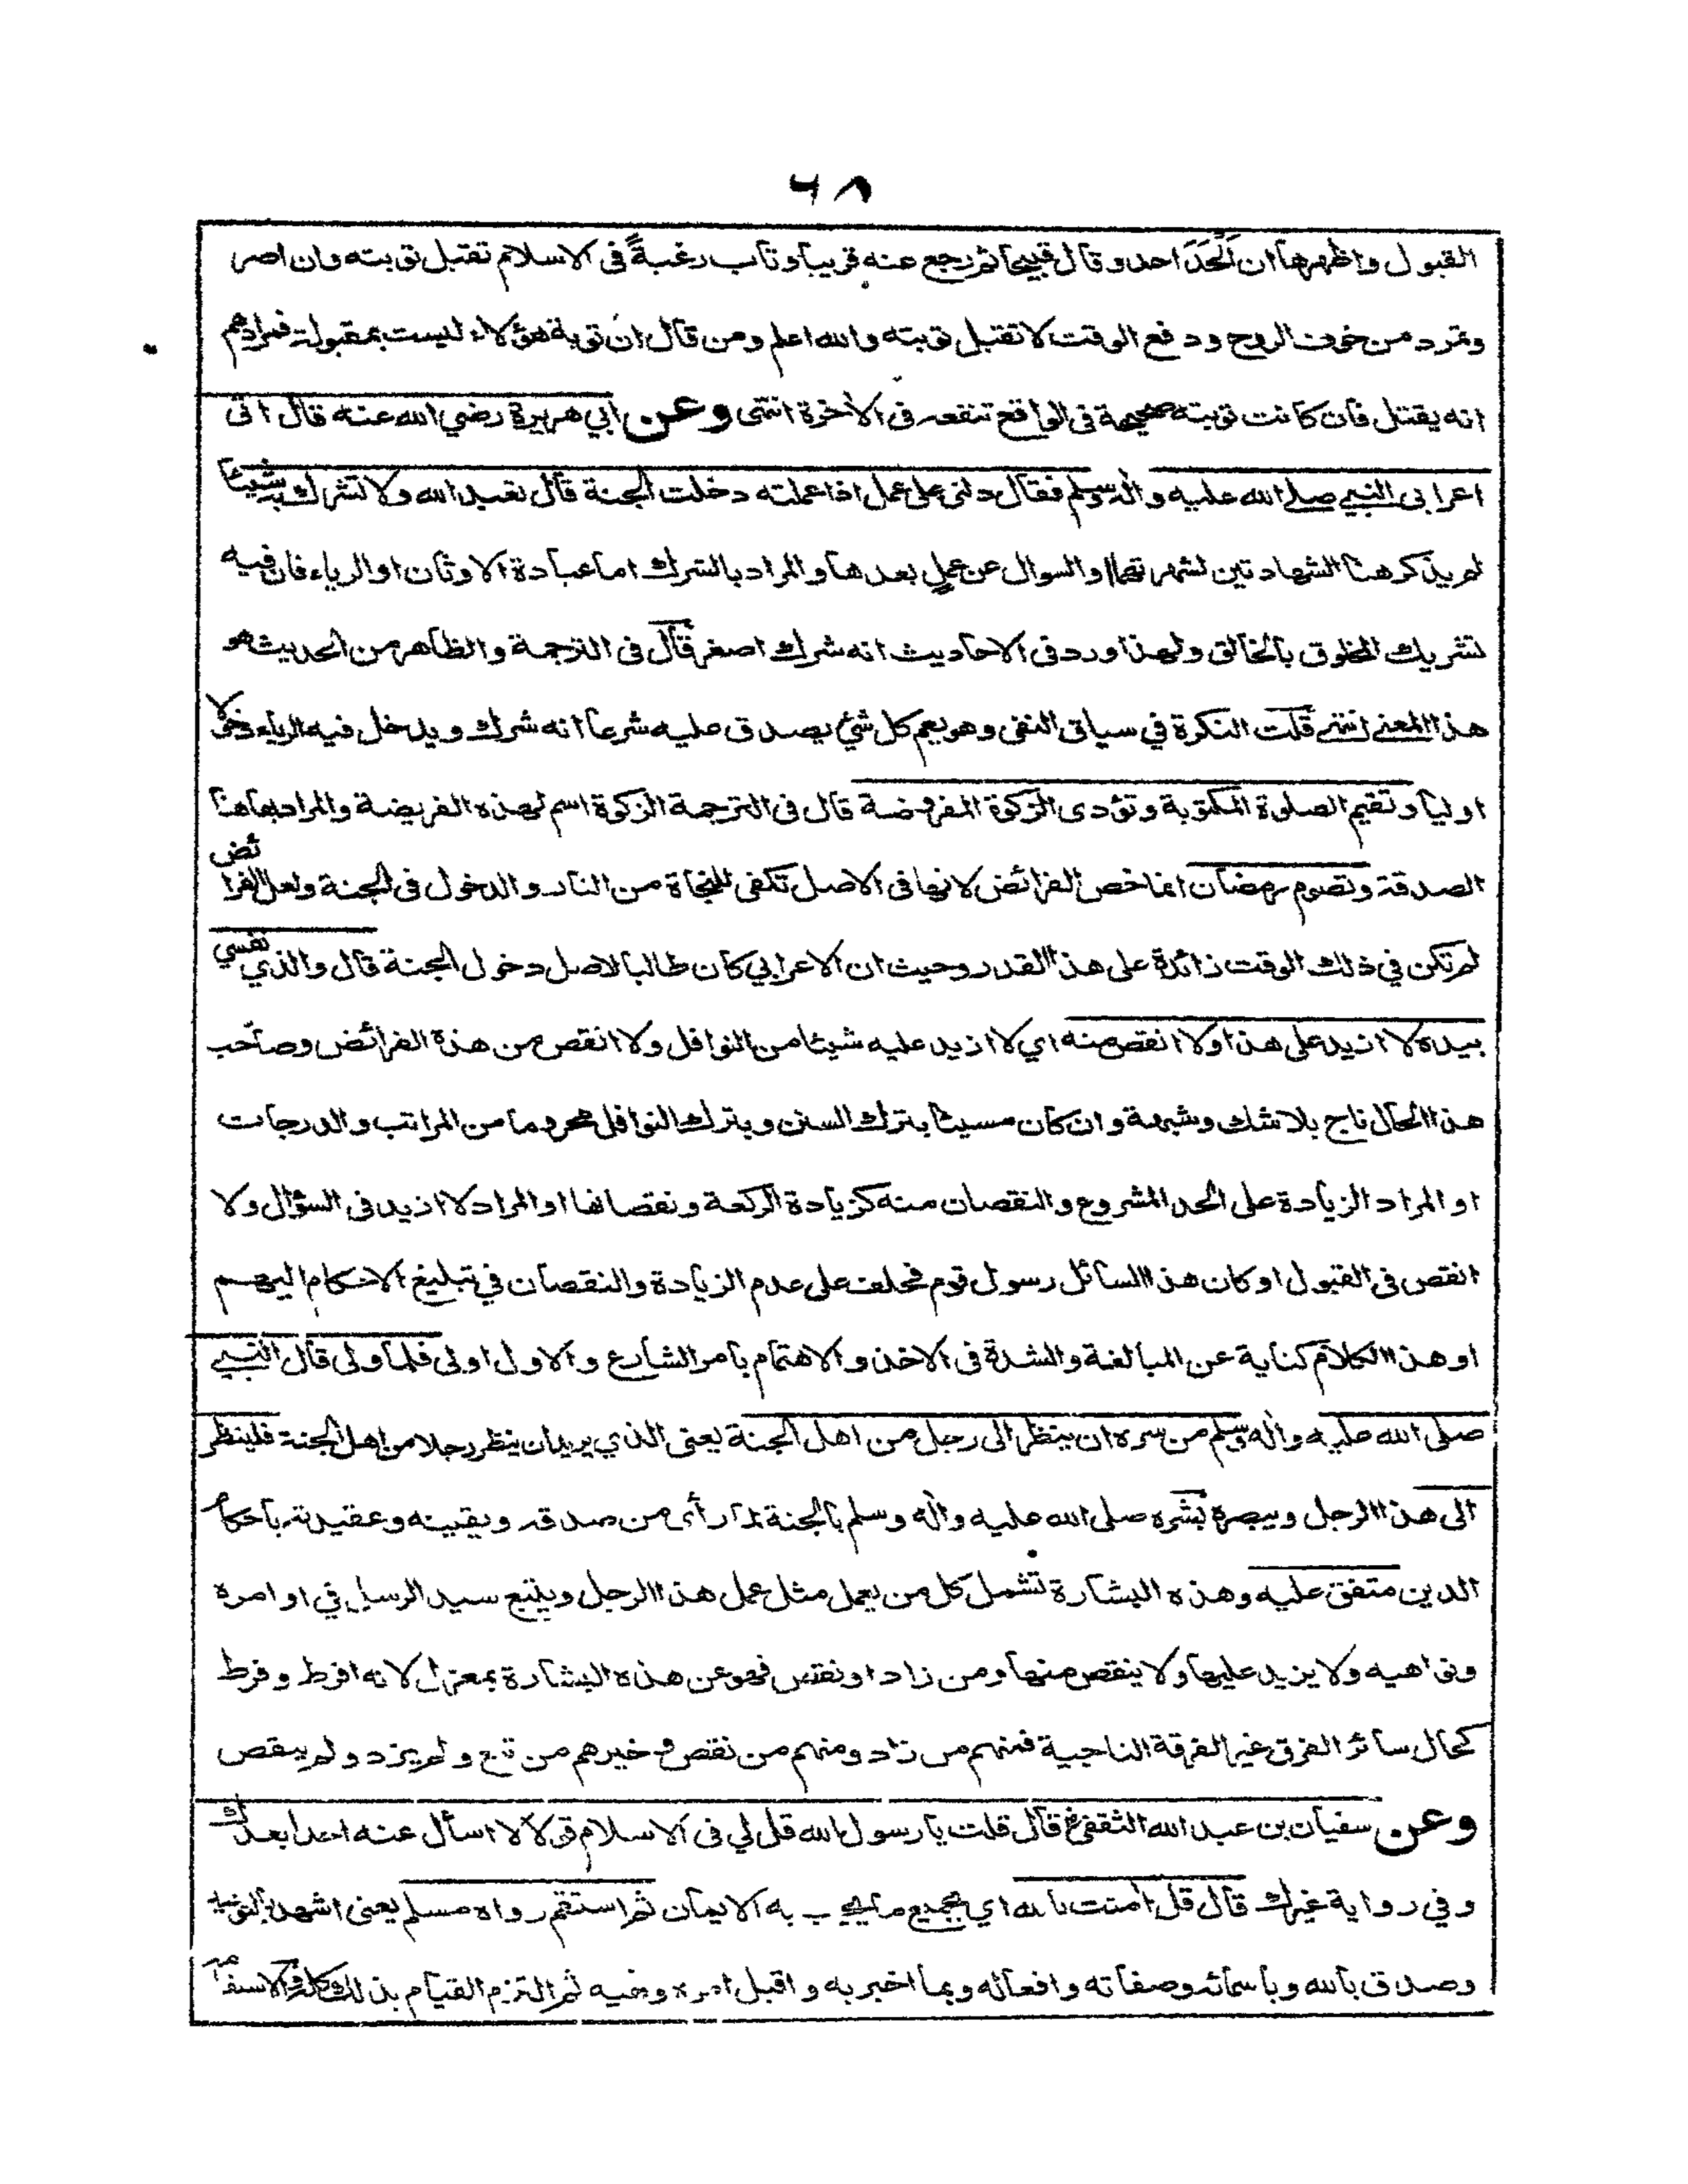 ٦٨
القبول واظهرها ان الْحَدَ احد وقال قبيحا ثم رجع عنه قريبا وتاب رغبةً فى الاسلام تقبل توبته وان اصر
وتمرد من خوف الروح ودفع الوقت لا تقبل توبته والله اعلم ومن قال ان توبة هؤلاء ليست بمقبولة فمرادهم
انه يقتل فان كانت توبته صحيحة فى الواقع تنفعه فى الآخرة انتهى وعن ابي هريرة رضي الله عنه قال اتى
اعرابى النبي صلى الله عليه وآله وسلم فقال دلنى على عمل اذا عملته دخلت الجنة قال تعبد الله ولا تشرك به شيئا
لم يذكر هنا الشهادتين لشهرتهما او السوال عن عمل بعدها والمراد بالشرك اما عبادة الاوثان او الرياء فان فيه
تشريك المخلوق بالخالق ولهذا ورد فى الاحاديث انه شرك اصغر قال فى الترجمة والظاهر من الحديث هو
هذا المعنى انتهى قلت النكرة في سياق النفى وهو يعم كل شئ يصدق عليه شرعا انه شرك ويدخل فيه الرياء دخولا
اوليا وتقيم الصلوة المكتوبة وتؤدى الزكوة المفروضة قال فى الترجمة الزكوة اسم لهذه الفريضة والمراد بها هنا
الصدقة وتصوم رمضان انما خص الفرائض لانها فى الاصل تكفى للنجاة من النار والدخول فى الجنة ولعل الفرائض
لم تكن في ذلك الوقت زائدة على هذا القدر وحيث ان الاعرابي كان طالبا لاصل دخول الجنة قال والذي نفسي
بيده لا ازيد على هذا ولا انقص منه اي لا ازيد عليه شيئا من النوافل ولا انقص من هذة الفرائض وصاحب
هذا الحال ناج بلا شك وشبهة وان كان مسيئا بترك السنن وبترك النوافل محروما من المراتب والدرجات
او المراد الزيادة على الحد المشروع والنقصان منه كزيادة الركعة ونقصانها او المراد لا ازيد فى السؤال ولا
انقص فى القبول او كان هذا السائل رسول قوم فحلف على عدم الزيادة والنقصان في تبليغ الاحكام اليهم
او هذا الكلام كناية عن المبالغة والشدة فى الاخذ والاهتمام بامر الشارع والاول اولى فلما ولى قال النبي
صلى الله عليه وآله وسلم من سره ان ينظر الى رجل من اهل الجنة يعنى الذي يريد ان ينظر رجلا من اهل الجنة فلينظر
الى هذا الرجل ويبصرة بَشَّره صلى الله عليه وآله وسلم بالجنة لما رأى من صدقه ويقينه وعقيدته باحكام
الدين متفق عليه وهذه البشارة تشمل كل من يعمل مثل عمل هذا الرجل ويتبع سيد الرسل في اوامره
ونواهيه ولا يزيد عليها ولا ينقص منها ومن زاد او نقص فهو عن هذه البشارة بمعزل لانه افرط وفرط
كحال سائر الفرق غير الفرقة الناجية فمنهم من زاد ومنهم من نقص وخيرهم من تبع ولم يزد ولم ينقص
وعن سفيان بن عبد الله الثقفي قال قلت يا رسول الله قل لي فى الاسلام قولا لا اسأل عنه احدا بعدك
وفي رواية غيرك قال قل آمنت بالله اي بجميع ما يجب به الايمان ثم استقم رواه مسلم يعنى اشهد بالتوحيد
وصدق بالله وباسمائه وصفاته وافعاله وبما اخبر به واقبل امره ونهيه ثم التزم القيام بذلك كله